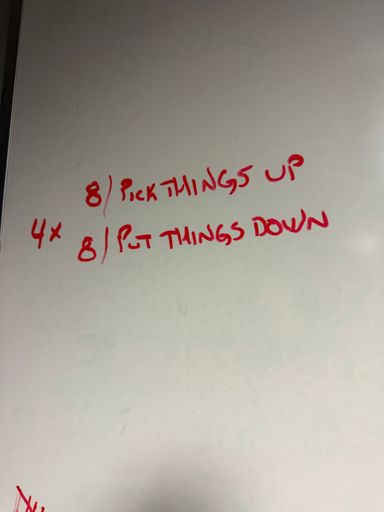 8/ PICK THINGS UP
4x
8/ PUT THINGS DOWN